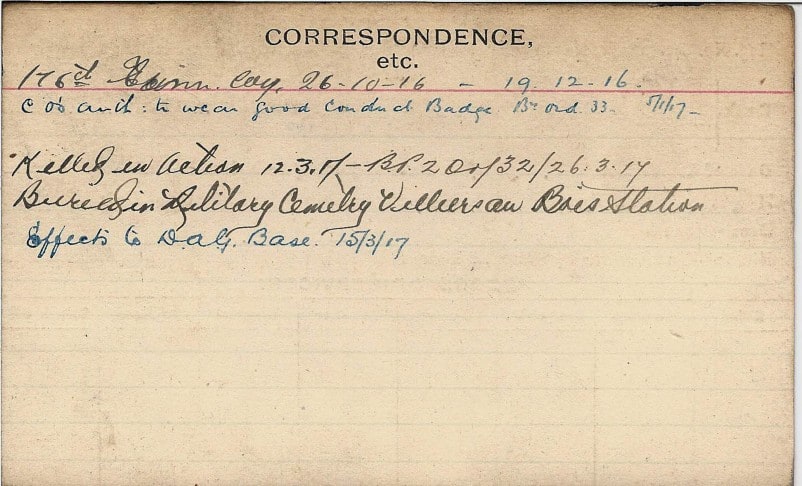 CORRESPONDENCE,
etc.
176th Tunn. Coy. 26-10-16 - 19.12-16.
C o's auth: to wear good conduct Badge Bn ord 33. 5/1/17-
Killed in Action 12.3.17 - B.P.2 Or/32/26.3.17
Buried in Military Cemetry Villiers au Bois Station
Effects to D.A.G. Base. 15/3/17